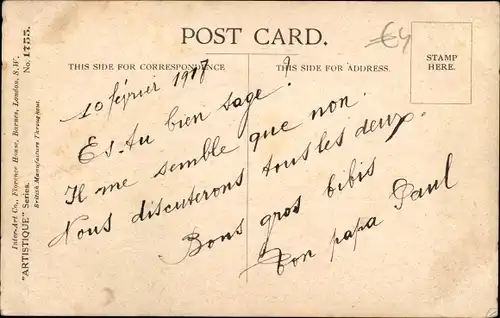 POST CARD.
THIS SIDE FOR CORRESPONDENCE
THIS SIDE FOR ADDRESS.
STAMP
HERE.
€4
10 février 1917
Es-tu bien sage ?
Il me semble que non.
Nous discuterons tous les deux.
Bons gros bibis
Ton papa Paul
Inter-Art Co., Florence House, Barnes, London, S.W.
"ARTISTIQUE" Series. No. 1755.
British Manufacture Throughout.